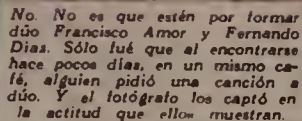 No. No es que estén por formar
dúo Francisco Amor y Fernando
Dias. Sólo fué que al encontrarse
hace pocos días, en un mismo ca-
fé, alguien pidió una canción a
dúo. Y el fotógrafo los captó en
la actitud que ellos muestran.